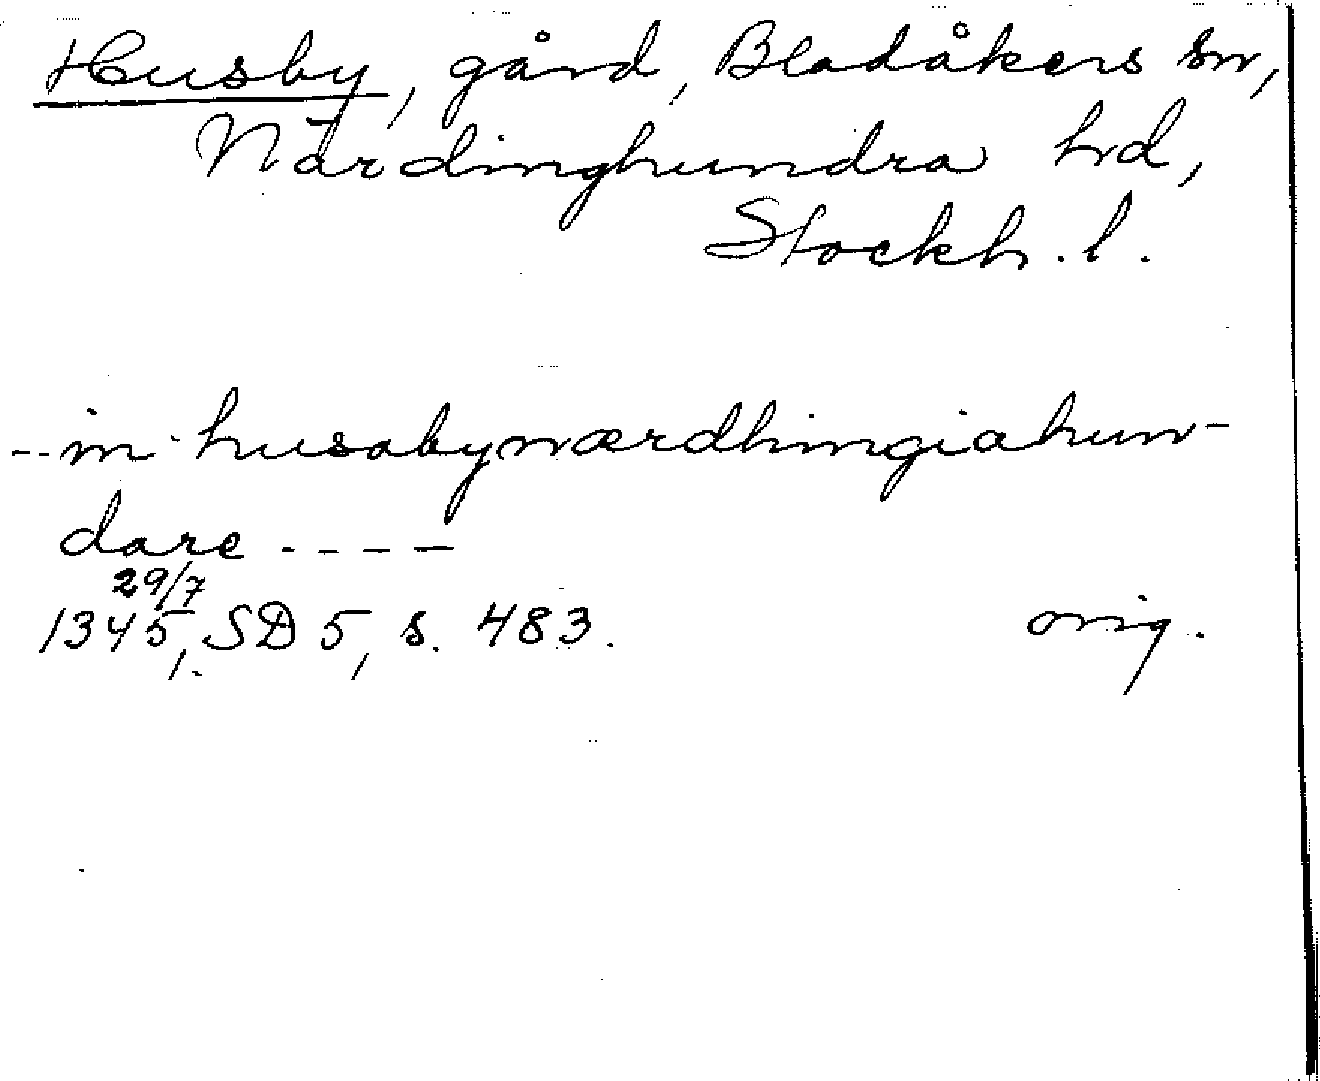 Husby, gård, Bladåkers sn,
Närdinghundra hd,
Stockh. l.
--in husabynærdhingiahun-
dare ----
29/7
1345, SD 5, s. 483. orig.